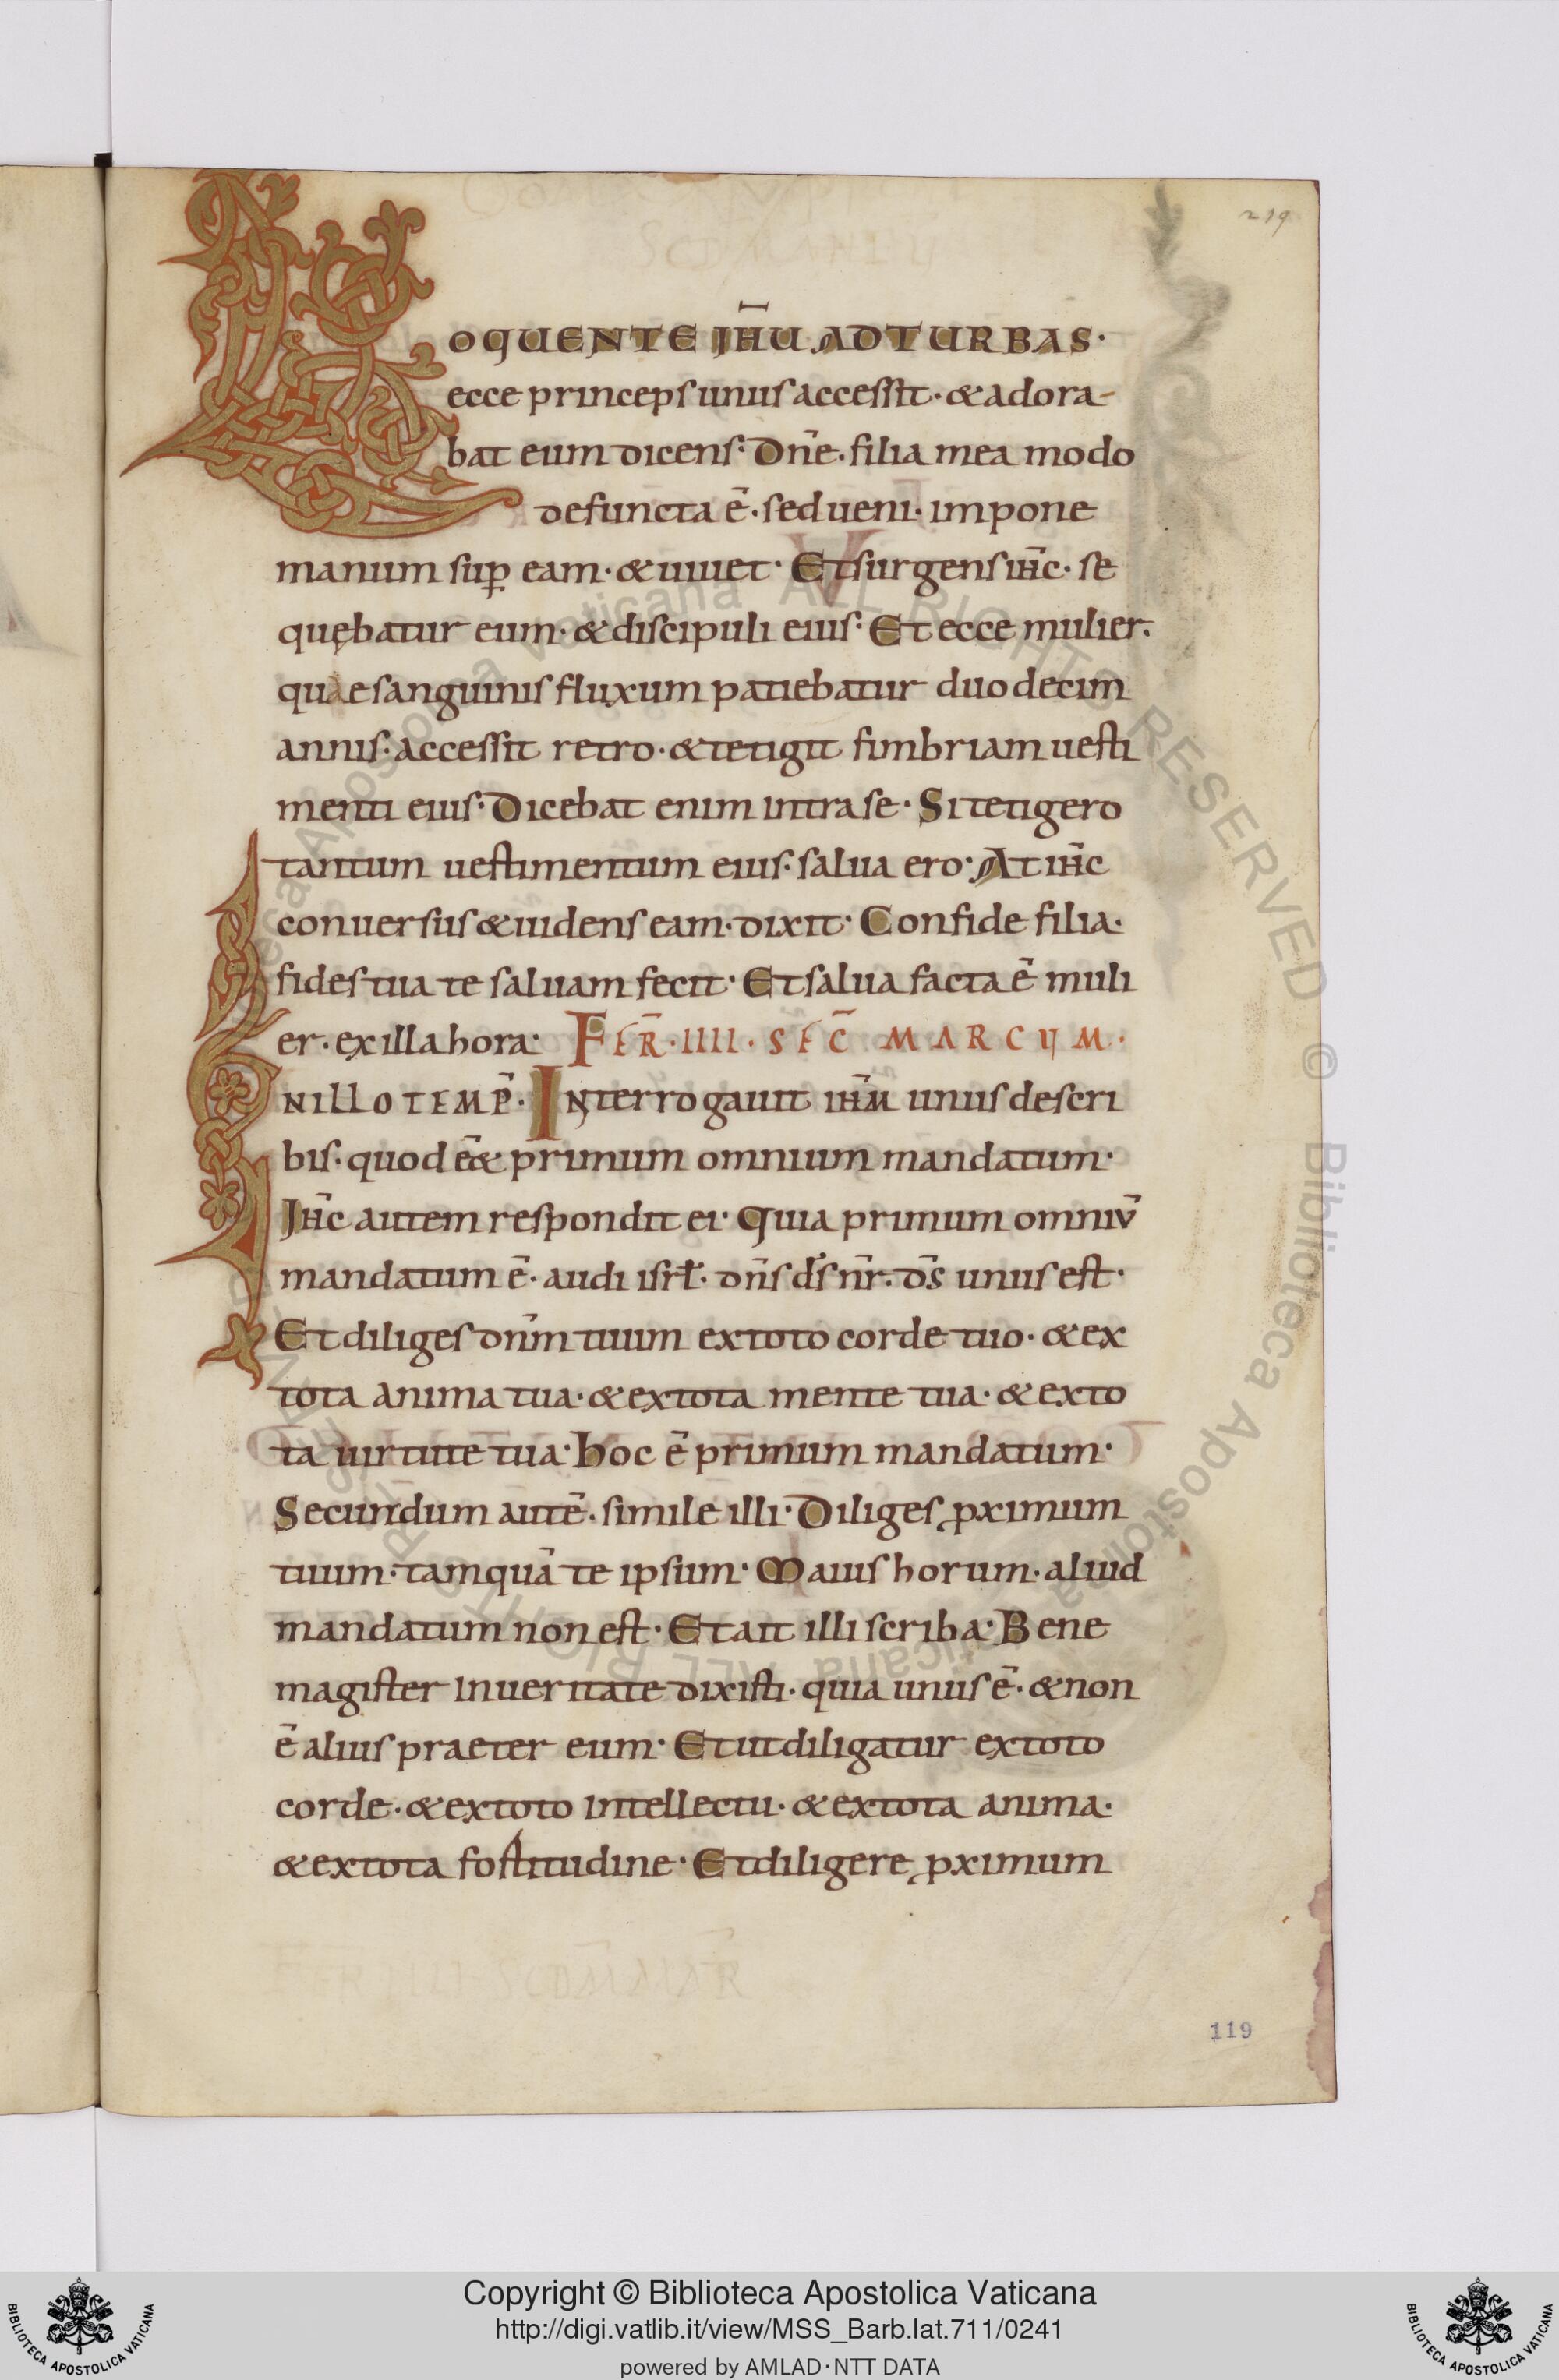 219
LOQUENTE IH̅U AD TURBAS·
ecce princeps unus accessit· & adora-
bat eum dicens· Dn̅e· filia mea modo
defuncta ē· sed ueni· impone
manum sup̱ eam· & uiuet· Et surgens ih̅c· se
quębatur eum· & discipuli eius· Et ecce mulier·
quae sanguinis fluxum patiebatur duodecim
annis· accessit retro· & tetigit fimbriam uesti
menti eius· Dicebat enim intra se· Si tetigero
tantum uestimentum eius· salua ero· At ih̅c
conuersus & uidens eam· dixit· Confide filia·
fides tua te saluam fecit· Et salua facta ē muli
er· ex illa hora· FER̅·IIII· SEC̅ MARCUM·
IN ILLO TEMP̅· Interrogauit ih̅m unus de scri
bis· quod ēē primum omnium mandatum·
Ih̅c autem respondit ei· Quia primum omniu̅
mandatum ē· audi isrl̅· dn̅s d̅s nr̅· d̅s unus est·
Et diliges dn̅m tuum ex toto corde tuo· & ex
tota anima tua· & ex tota mente tua· & ex to
ta uirtute tua· Hoc ē primum mandatum·
Secundum autē· simile illi· Diliges ꝓximum
tuum· tamquā te ipsum· Maius horum· aliud
mandatum non est· Et ait illi scriba· Bene
magister in ueritate dixisti· quia unus ē· & non
ē alius praeter eum· Et ut diligatur ex toto
corde· & ex toto intellectu· & ex tota anima·
& ex tota fortitudine· Et diligere ꝓximum
119
Copyright © Biblioteca Apostolica Vaticana
http://digi.vatlib.it/view/MSS_Barb.lat.711/0241
powered by AMLAD·NTT DATA
BIBLIOTECA APOSTOLICA VATICANA
BIBLIOTECA APOSTOLICA VATICANA